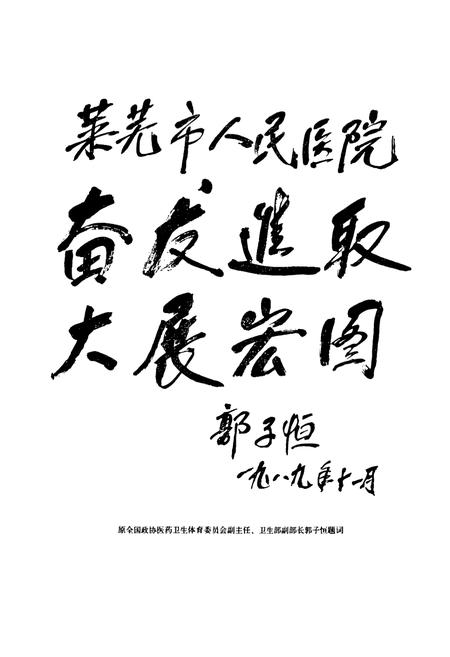 莱芜市人民医院
奋发進取
大展宏图
郭子恒
一九八九年十一月
原全国政协医药卫生体育委员会副主任、卫生部副部长郭子恒题词